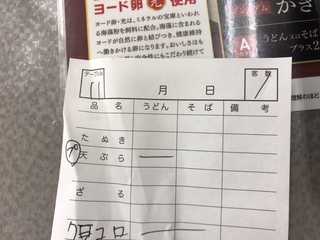 ヨード卵 光 使用
ヨード卵・光は、ミネラルの宝庫といわれ
る海藻粉を飼料に配合。海藻に含まれる
ヨードが自然に卵と結びつき、健康維持
へと働きかける卵になります。おいしさは
かき
A うどん又はそば
プラス2
テーブル 11 月 日 客数 1
品名 うどん そば 備考
たぬき
プ 天ぷら 一
ざる